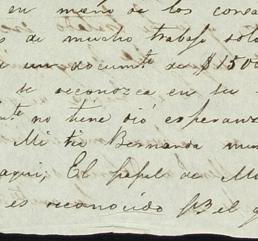 en mano de los
s de mucho trabajo solo
un documte de $1500
se reconozca en su
te no tiene dió esperanz
Mi tio Bernardo mu
aqui, El papel de M
es reconocido el